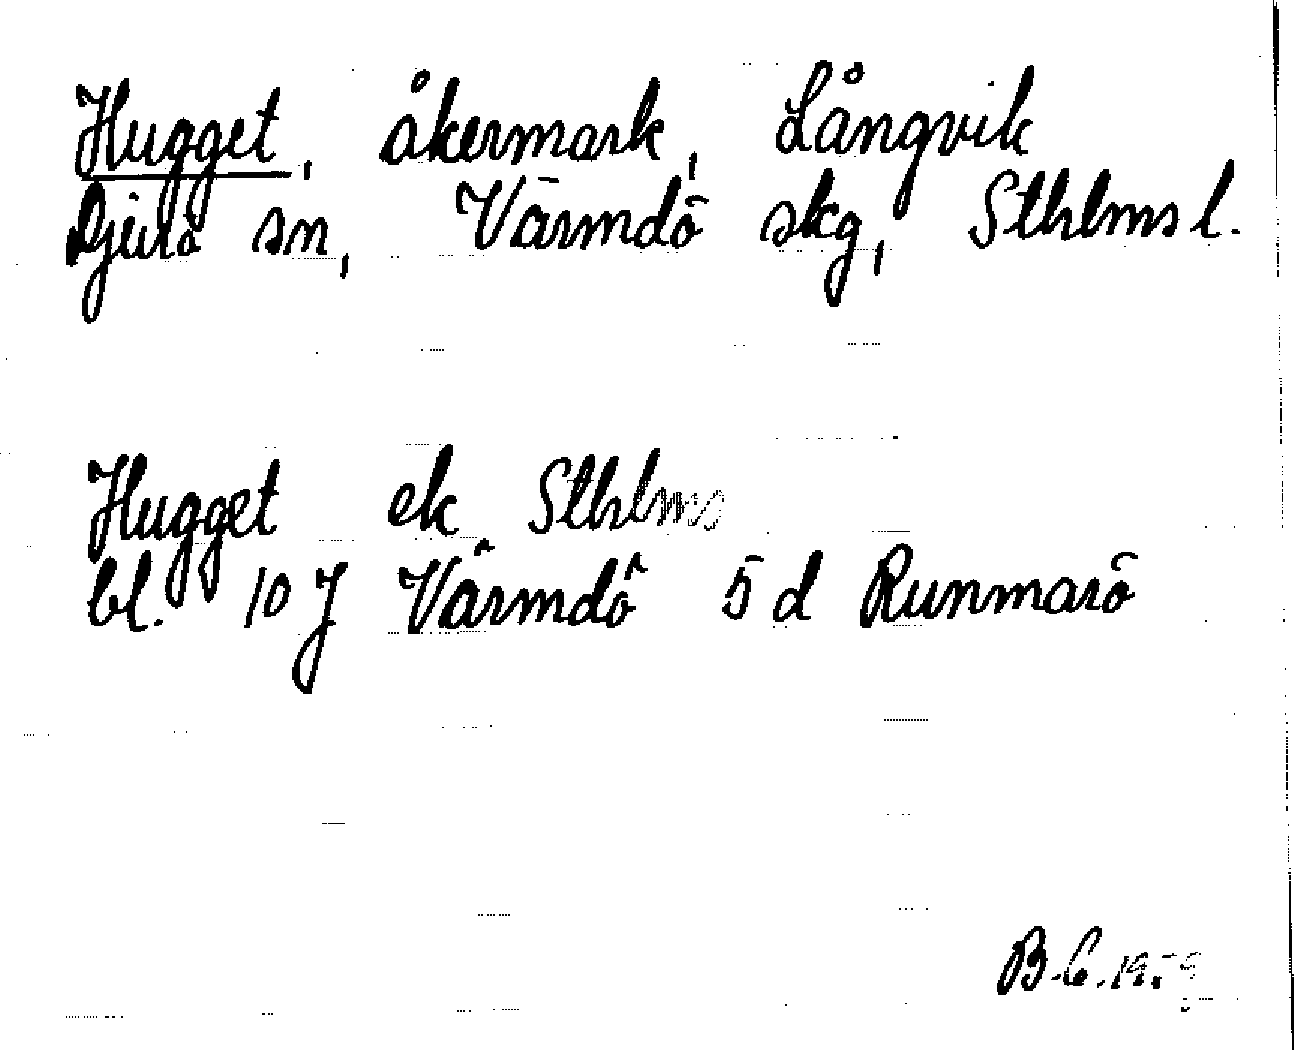 Hugget, åkermark, Långvik
Djurö sn, Värmdö skg, Sthlms l.
Hugget ek Sthlms
bl. 10 J Värmdö 5 d Runmarö
B.C. 19